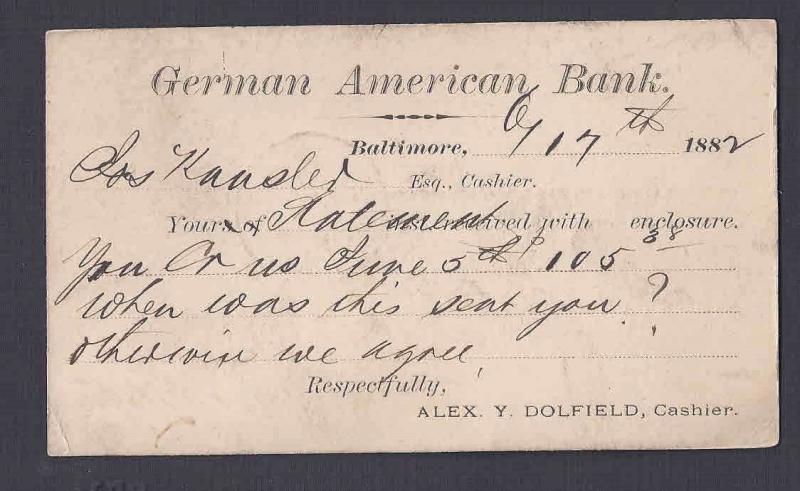 German American Bank.
Baltimore, 6/17th 1882
Jos Kansler Esq., Cashier.
Yours of Statement received with enclosure.
You Cr us June 5th 105 38
when was this sent you?
otherwise we agree
Respectfully,
ALEX. Y. DOLFIELD, Cashier.